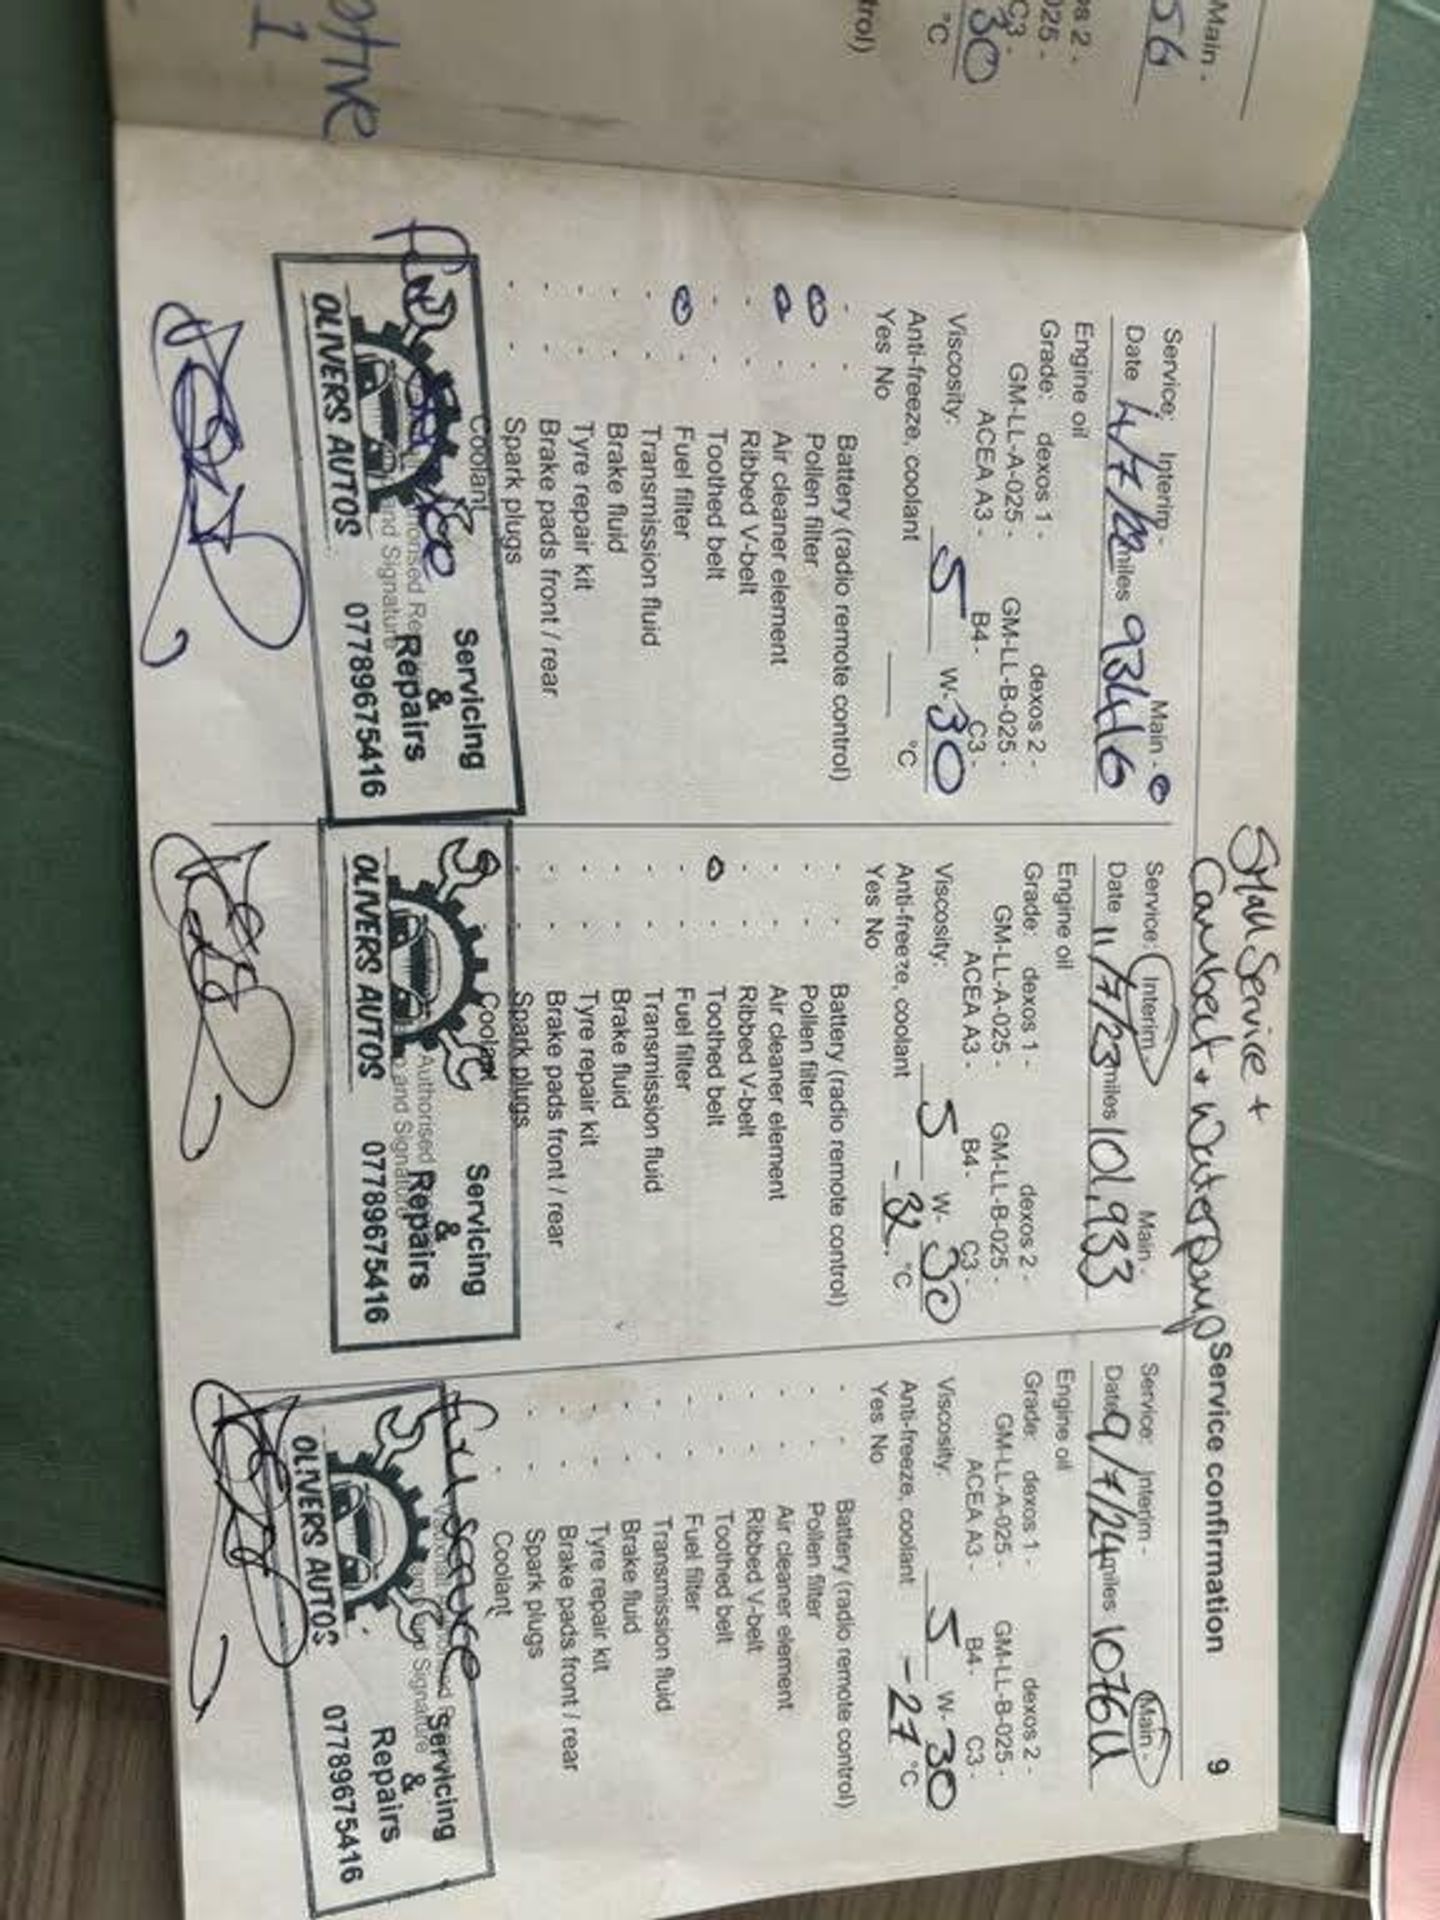 Small Service +
Cambelt + Waterpump Service confirmation 9
Service: Interim - Main -
Date 4/7/22 miles 93416
Engine oil
Grade: dexos 1 - dexos 2 -
GM-LL-A-025 - GM-LL-B-025 -
ACEA A3 - B4 - C3 -
Viscosity: 5 W- 30
Anti-freeze, coolant °C
Yes No
- - Battery (radio remote control)
- Pollen filter
- Air cleaner element
- - Ribbed V-belt
- - Toothed belt
- Fuel filter
- - Transmission fluid
- - Brake fluid
- - Tyre repair kit
- - Brake pads front / rear
- - Spark plugs
Coolant
full service
Servicing
&
Repairs
OLIVERS AUTOS 07789675416
Service: Interim - Main -
Date 11/7/23 miles 101,933
Engine oil
Grade: dexos 1 - dexos 2 -
GM-LL-A-025 - GM-LL-B-025 -
ACEA A3 - B4 - C3 -
Viscosity: 5 W- 30
Anti-freeze, coolant -32 °C
Yes No
- - Battery (radio remote control)
- - Pollen filter
- - Air cleaner element
- - Ribbed V-belt
- Toothed belt
- - Fuel filter
- - Transmission fluid
- - Brake fluid
- - Tyre repair kit
- - Brake pads front / rear
- - Spark plugs
Coolant
Servicing
&
Authorised Repairs
and Signature
OLIVERS AUTOS 07789675416
Service: Interim - Main -
Date 9/7/24 miles
Engine oil
Grade: dexos 1 - dexos 2 -
GM-LL-A-025 - GM-LL-B-025 -
ACEA A3 - B4 - C3 -
Viscosity: 5 W- 30
Anti-freeze, coolant -27 °C
Yes No
- - Battery (radio remote control)
- - Pollen filter
- - Air cleaner element
- - Ribbed V-belt
- - Toothed belt
- - Fuel filter
- - Transmission fluid
- - Brake fluid
- - Tyre repair kit
- - Brake pads front / rear
- - Spark plugs
- Coolant
full service
Servicing
&
Repairs
OLIVERS AUTOS 07789675416
Main -
56
os 2 -
025 -
C3 -
30
°C
trol)
otive
1